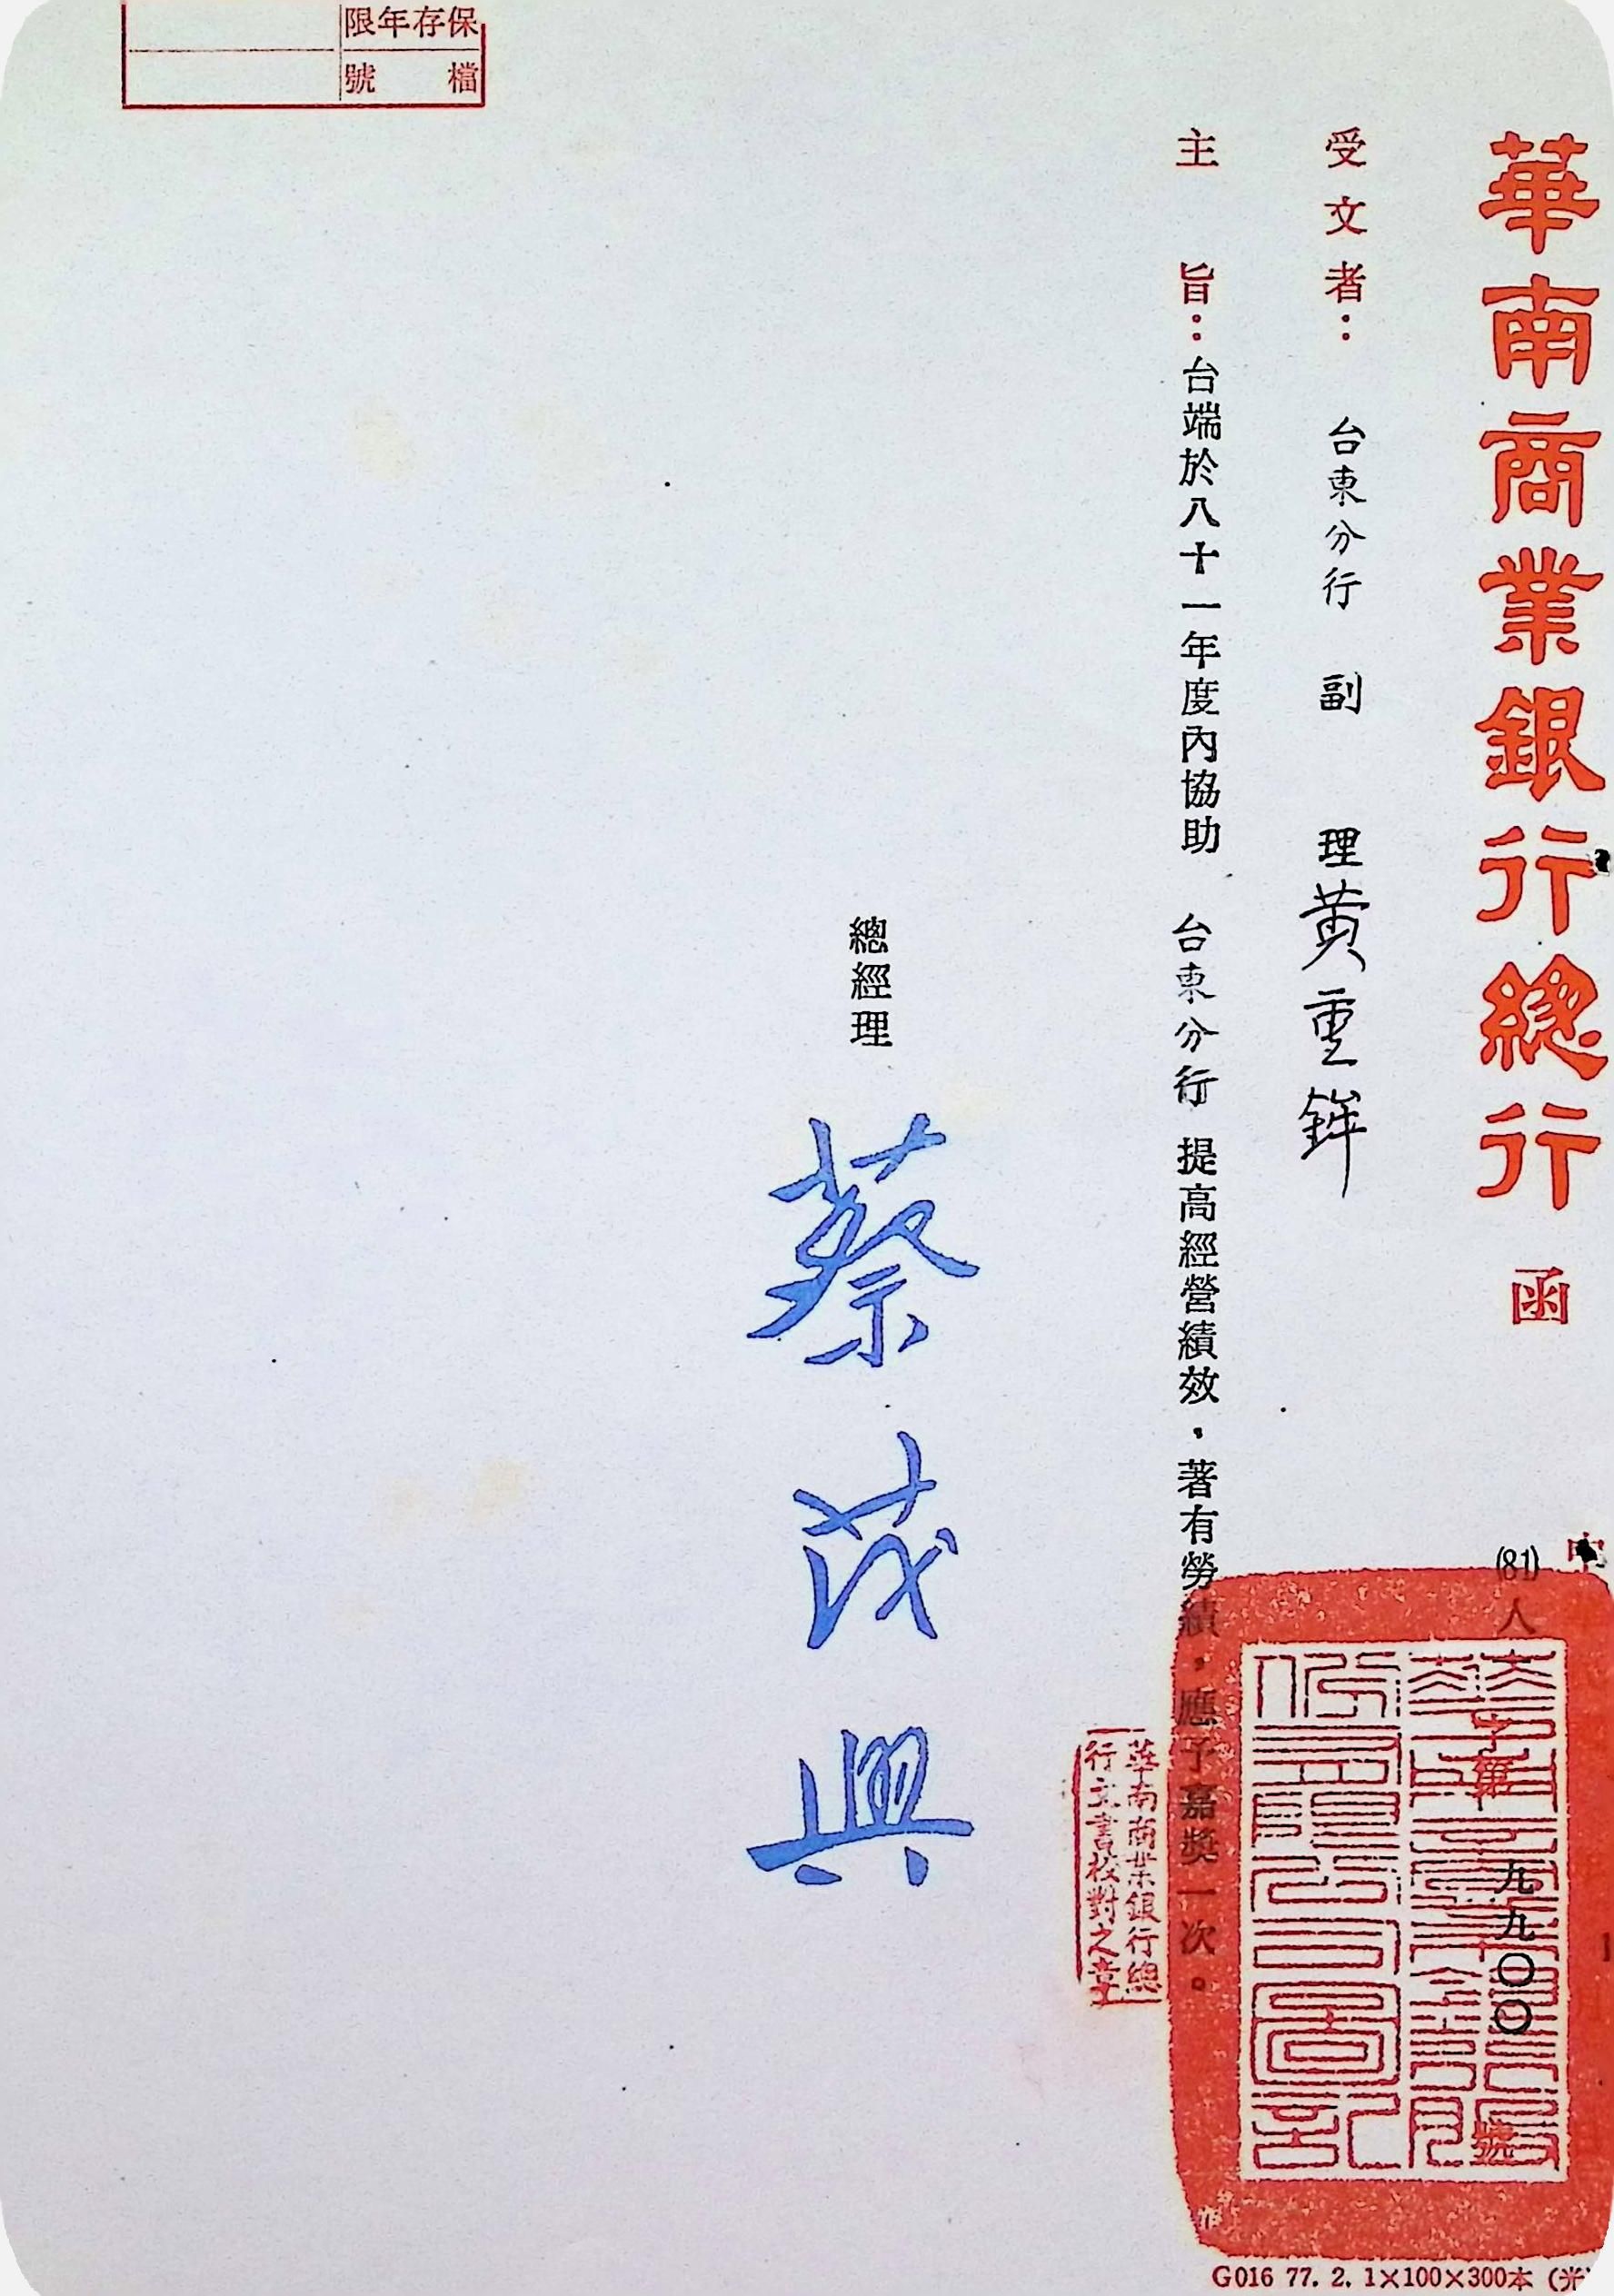 保存年限
檔號
華南商業銀行總行 函
(81)人字第九九〇〇號
受文者：台東分行 副理 黃重鉾
主旨：台端於八十一年度內協助 台東分行 提高經營績效，著有勞績，應予嘉獎一次。
華南商業銀行總
行文書校對之章
總經理 蔡茂興
華南商業銀行股
份有限公司圖記
G016 77. 2. 1×100×300本 (光